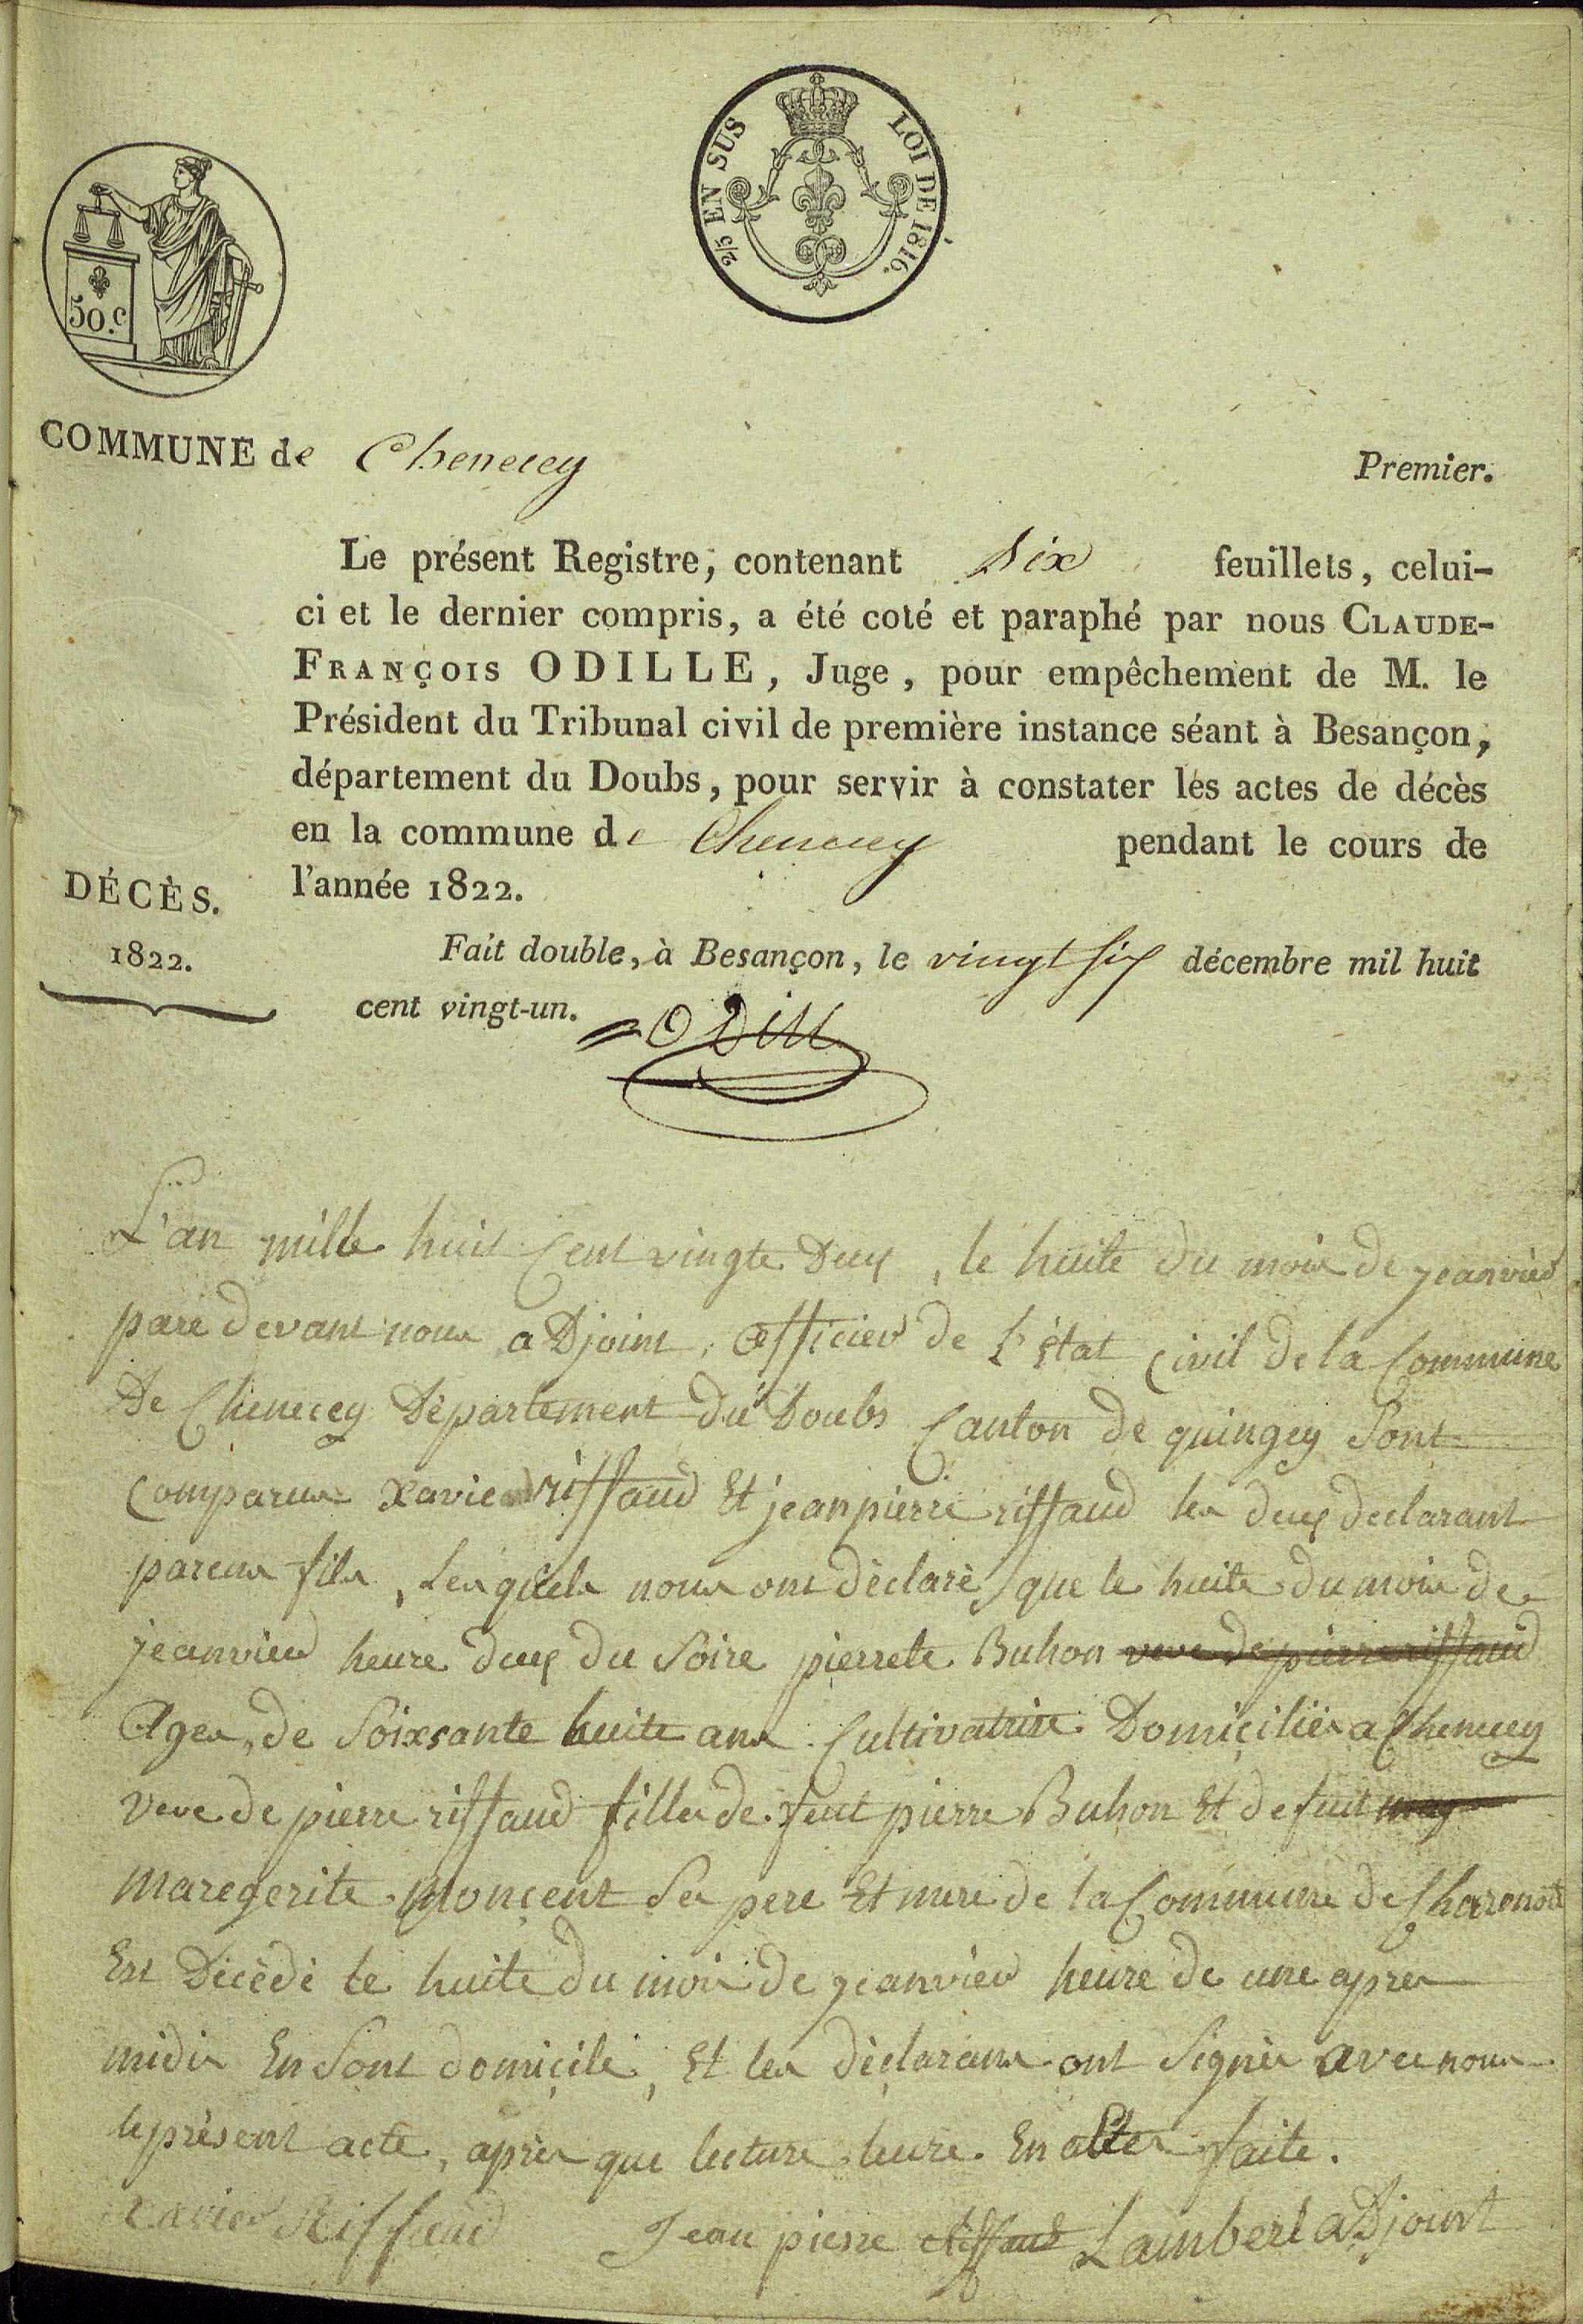 2/5 EN SUS LOI DE 1816.
50.c
COMMUNE de Chenecey
Premier.
Le présent Registre, contenant six feuillets, celui-
ci et le dernier compris, a été coté et paraphé par nous CLAUDE-
FRANÇOIS ODILLE, Juge, pour empêchement de M. le
Président du Tribunal civil de première instance séant à Besançon,
département du Doubs, pour servir à constater les actes de décès
en la commune de Chenecey pendant le cours de
l'année 1822.
DÉCÈS.
1822.
Fait double, à Besançon, le vingt six décembre mil huit
cent vingt-un.
Odill
L'an mille huit Cent vingte Deux, le huite du mois de jeanvier
pare devant nous aDjoint, officier de L'état Civil de la Commune
De Chenecey Département du Doubs Canton de quingey Sont
Comparus Xavier riffaud Et jean pierre riffaud les deux declarant
parens fils, Lesquels nous ont déclarè que le huite du mois de
jeanvier heure deux du Soire pierrete Buhon veve de pierre riffaud
Ages, de Soixsante huite ans Cultivatrice Domiciliés a Chenecey
veve de pierre riffaud filles de feut pierre Buhon Et de fuit
maregerite Monçent Ses pere Et mere de la Commune de
Est Décèdé le huite du mois de jeanvier heure de une apres
midis En Sont domicile, Et les déclarans ont Signés avec nous
le présent acte, après que lecture leure. En aEtes faite.
Xavier Riffaud Jean pierre Riffaud Lambert aDjoint